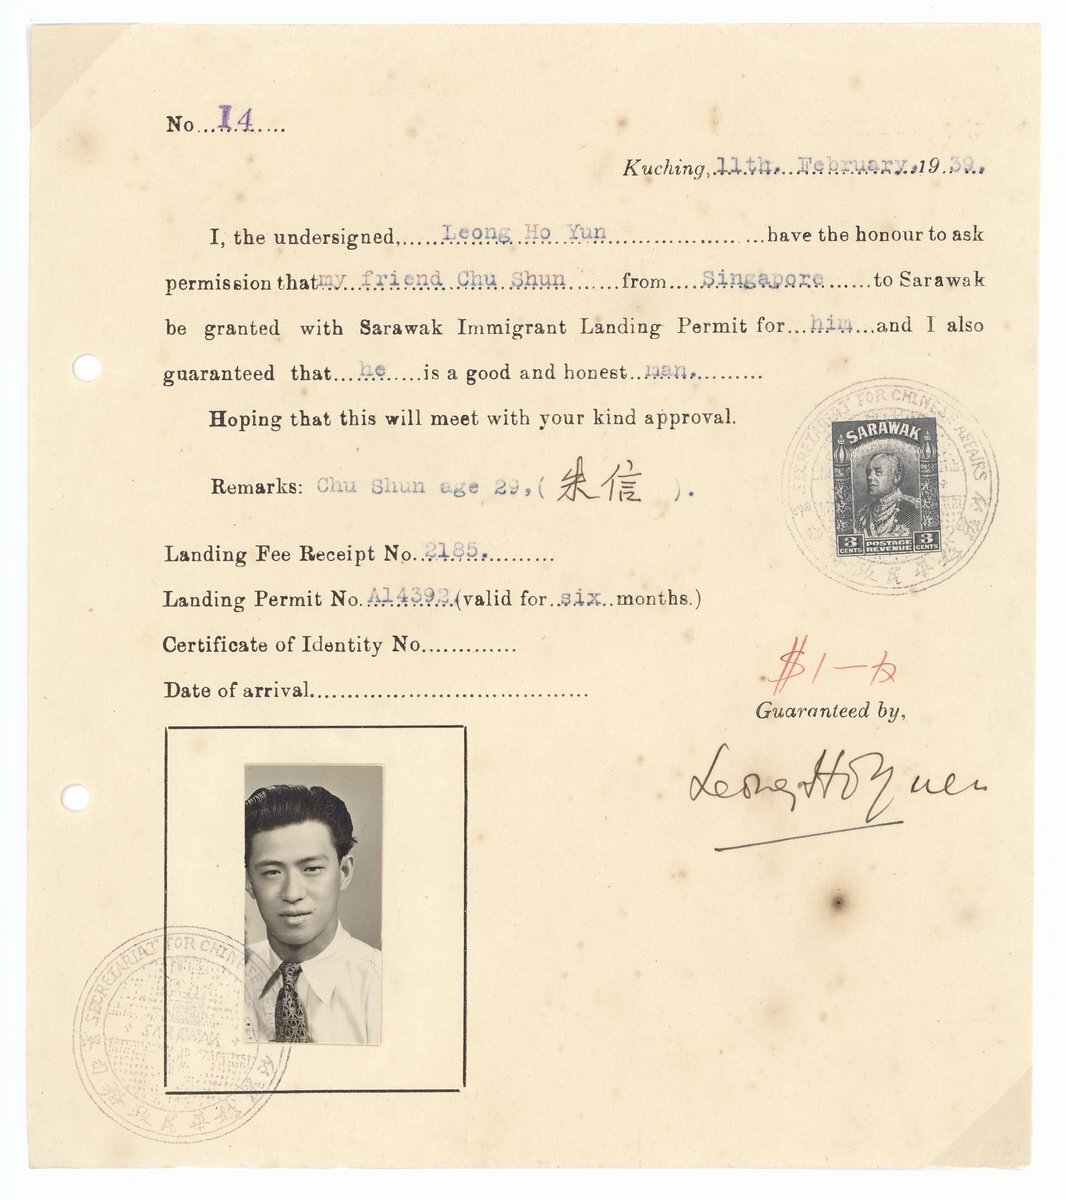 No. 14
Kuching, 11th. February, 1939.
I, the undersigned, Leong Ho Yun have the honour to ask
permission that my friend Chu Shun from Singapore to Sarawak
be granted with Sarawak Immigrant Landing Permit for him and I also
guaranteed that he is a good and honest man.
Hoping that this will meet with your kind approval.
SECRETARIAT FOR CHINESE AFFAIRS
SARAWAK
3 CENTS POSTAGE REVENUE 3 CENTS
Remarks: Chu Shun age 29, (朱信).
Landing Fee Receipt No. 2185.
Landing Permit No. A14392 (valid for six months.)
Certificate of Identity No.............
Date of arrival.................................
$1—
Guaranteed by,
Leong Ho Yuen
SECRETARIAT FOR CHINESE
SARAWAK